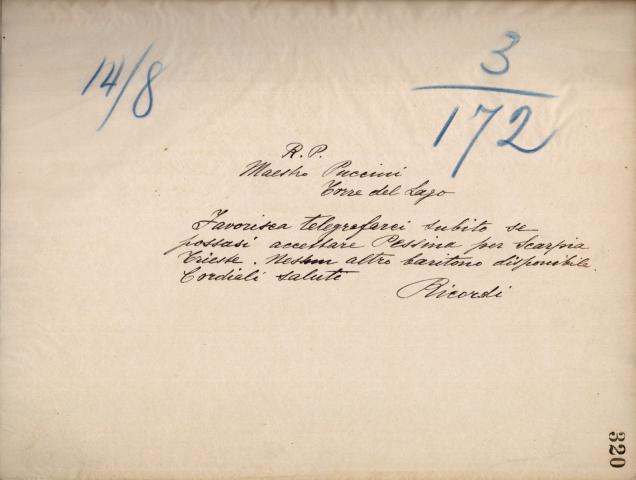 14/8
3
172
R. P.
Maestro Puccini
Torre del Lago
Favorisca telegrafarci subito se
possasi accettare Pessina per Scarpia
Trieste. Nessun altro baritono disponibile.
Cordiali saluti
Ricordi
320